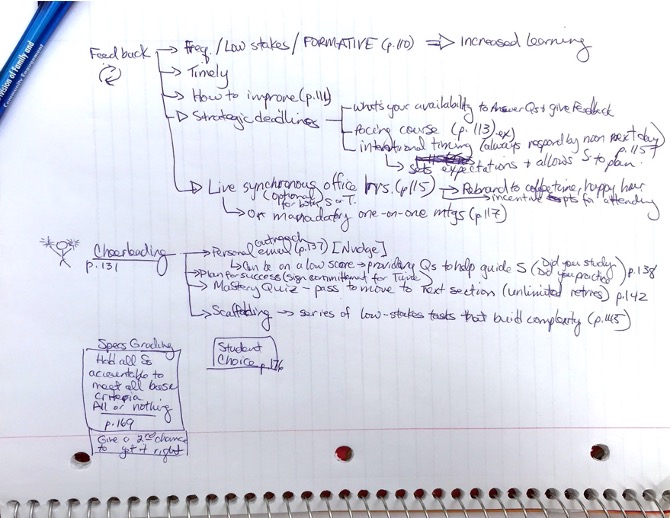 Division of Family and
Community Engagement
Feedback → Freq./Low stakes/FORMATIVE (p.110) ⇒ Increased learning
→ Timely
→ How to improve (p.111)
→ Strategic deadlines
what's your availability to Answer Qs + give Feedback
pacing course (p. 113)-ex)
intentional timing (always respond by noon next day) p.115
↳ sets expectations + allows S to plan.
→ Live synchronous office hrs. (p115) → Rebrand to coffee time, happy hour
(optional for both S or T.
→ incentive pts for attending
↳ Or mandatory one-on-one mtgs (p.117)
Cheerleading
p.131
→ Personal outreach email (p.137) [Nudge]
↳ Can be on a low score → providing Qs to help guide S (Did you study? Did you practice?) p.138
→ Plan for success (sign commitment for Time)
→ Mastery Quiz - pass to move to next section (unlimited retries) p.142
→ Scaffolding → series of low-stakes tasks that build complexity (p.145)
Specs Grading
Hold all Ss
accountable to
meet all base
criteria
All or nothing
p.169
Give a 2nd chance
to get it right
Student
Choice p.176